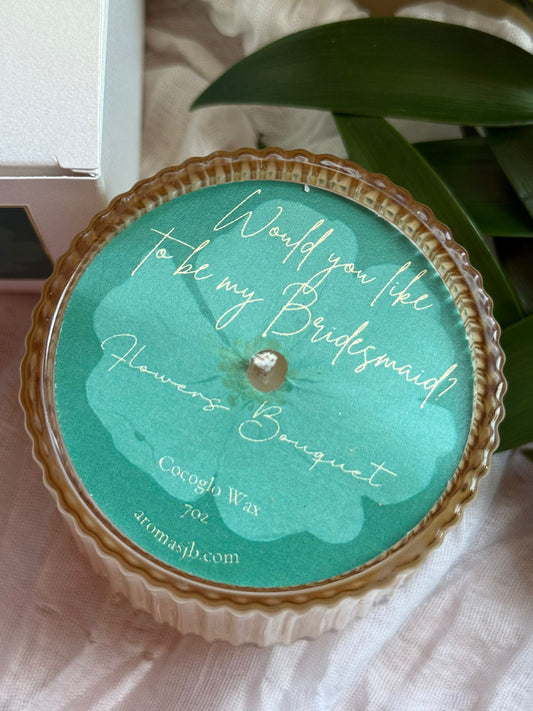 Would you like
to be my Bridesmaid?
Flowers Bouquet
Cocoglo Wax
7oz
aromasjb.com